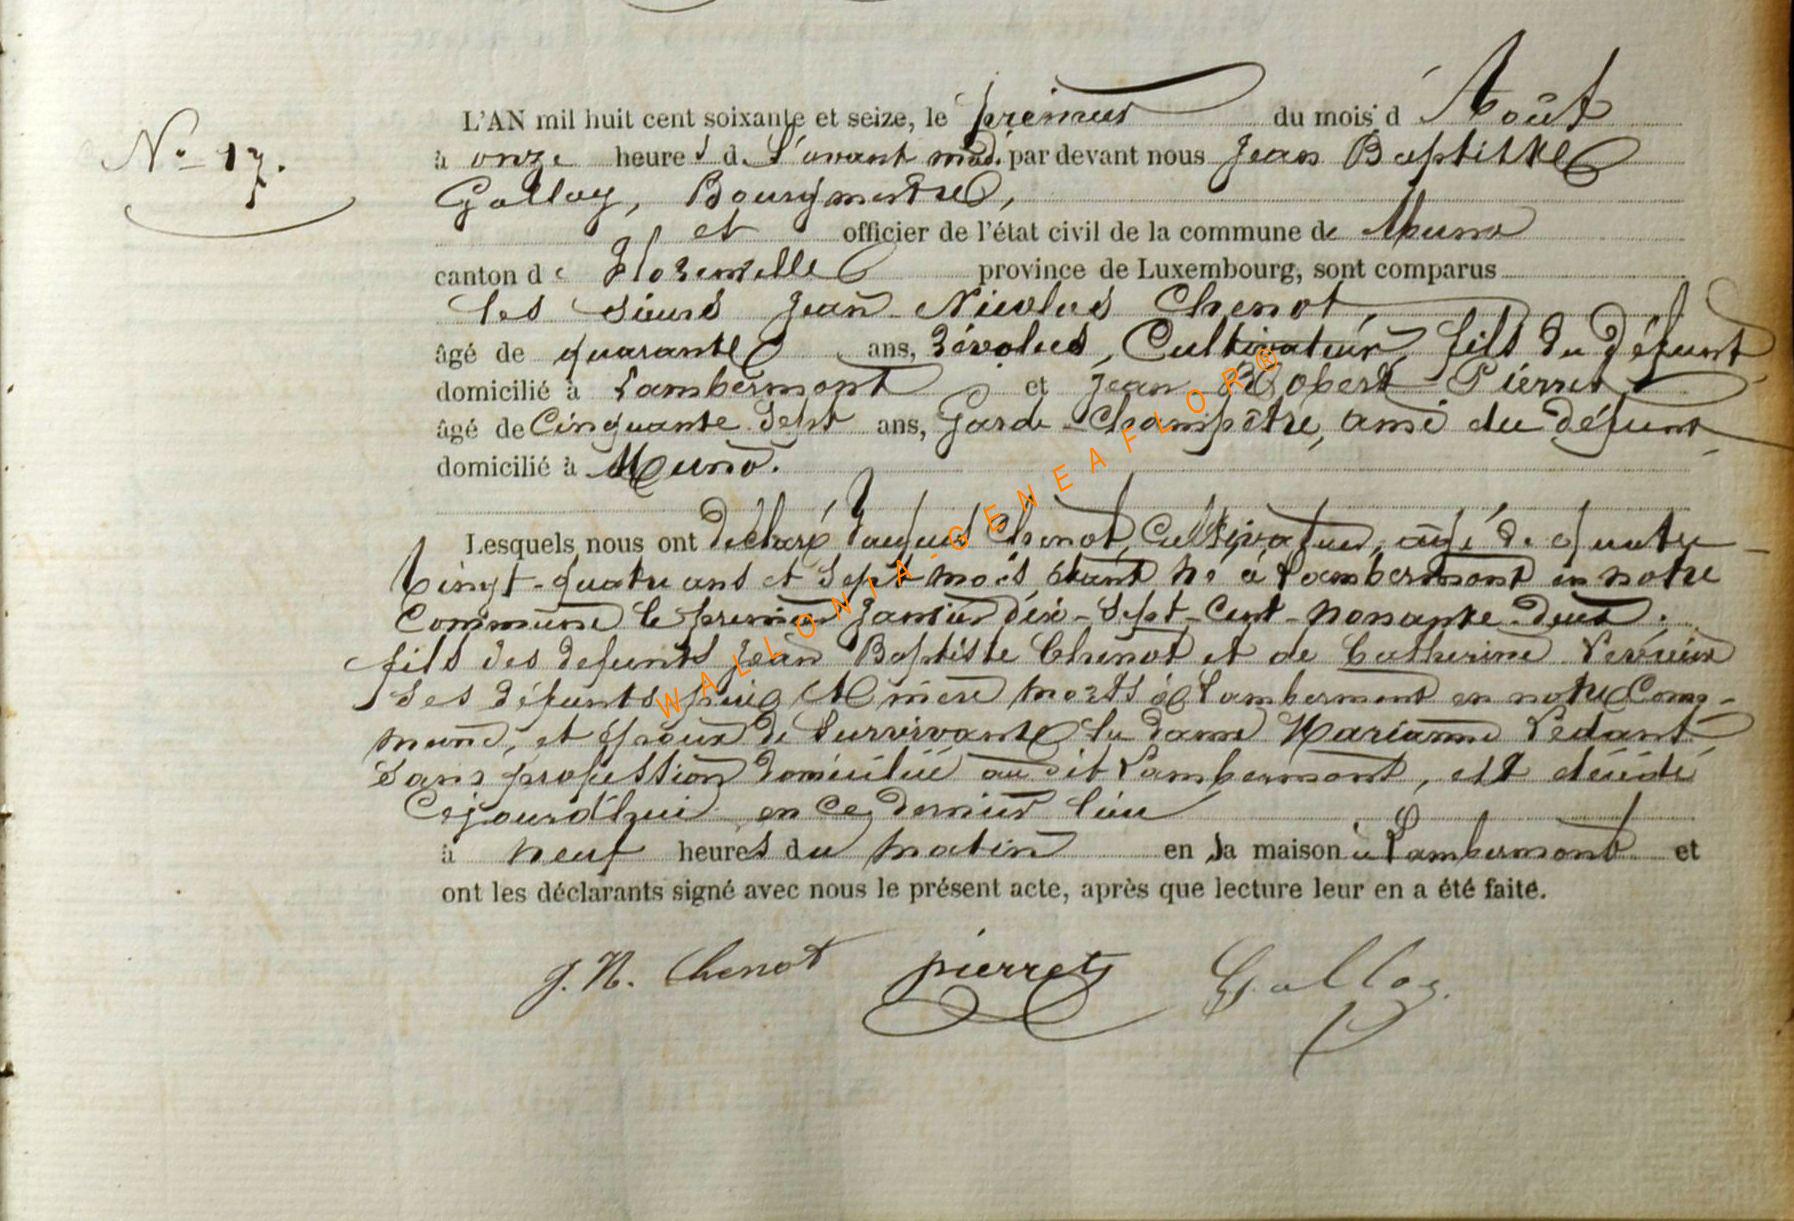 N° 17.
L'AN mil huit cent soixante et seize, le premier du mois d'Août
à onze heures de L'avant midi par devant nous Jean Baptiste
Galloy, Bourgmestre,
et officier de l'état civil de la commune de Muno
canton de Florenville province de Luxembourg, sont comparus
les sieurs Jean Nicolas Chenot,
âgé de quarante ans, révolus, Cultivateur, fils du défunt
domicilié à Lambermont et Jean Robert Pierret
âgé de Cinquante Sept ans, Garde-Champêtre, ami du défunt
domicilié à Muno.
Lesquels nous ont déclaré Jacques Chenot, Cultivateur, agé de quatre
Vingt-quatre ans et Sept mois étant né à Lambermont en notre
Commune le premier Janvier dix-Sept-Cent-nonante-deux.
fils des defunts Jean Baptiste Chenot et de Catherine
Ses défunts père et mère morts à Lambermont en notre Com-
mune, et époux de Survivante la dame Marianne Pedant
Sans profession domiciliée au dit Lambermont, est décédé
Cejourd'hui en ce dernier lieu
à neuf heures du matin en sa maison à Lambermont et
ont les déclarants signé avec nous le présent acte, après que lecture leur en a été faite.
J. N. Chenot pierret Galloy.
WALLONIA-GENEAFLOR®